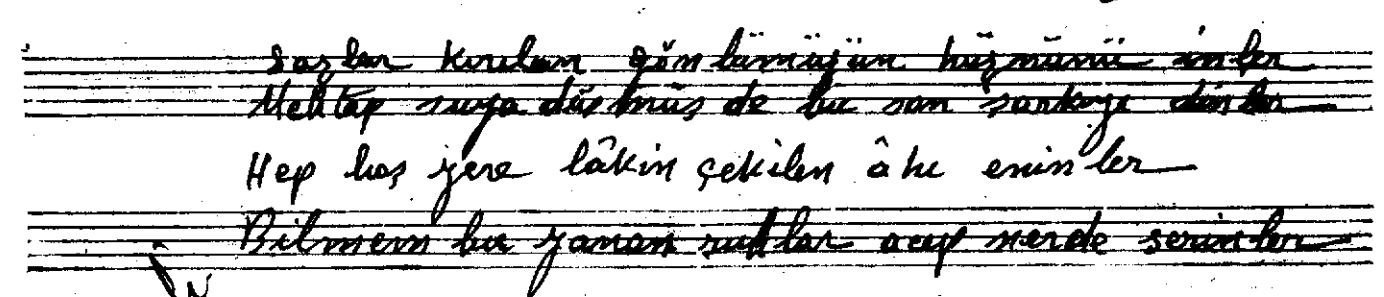 Sazlar kırılan gönlümüzün hüznünü inler
Mehtap suya düşmüş de bu son şarkıyı dinler
Hep boş yere lâkin çekilen âhı eninler
Bilmem bu yanan ruhlar acep nerde serinler